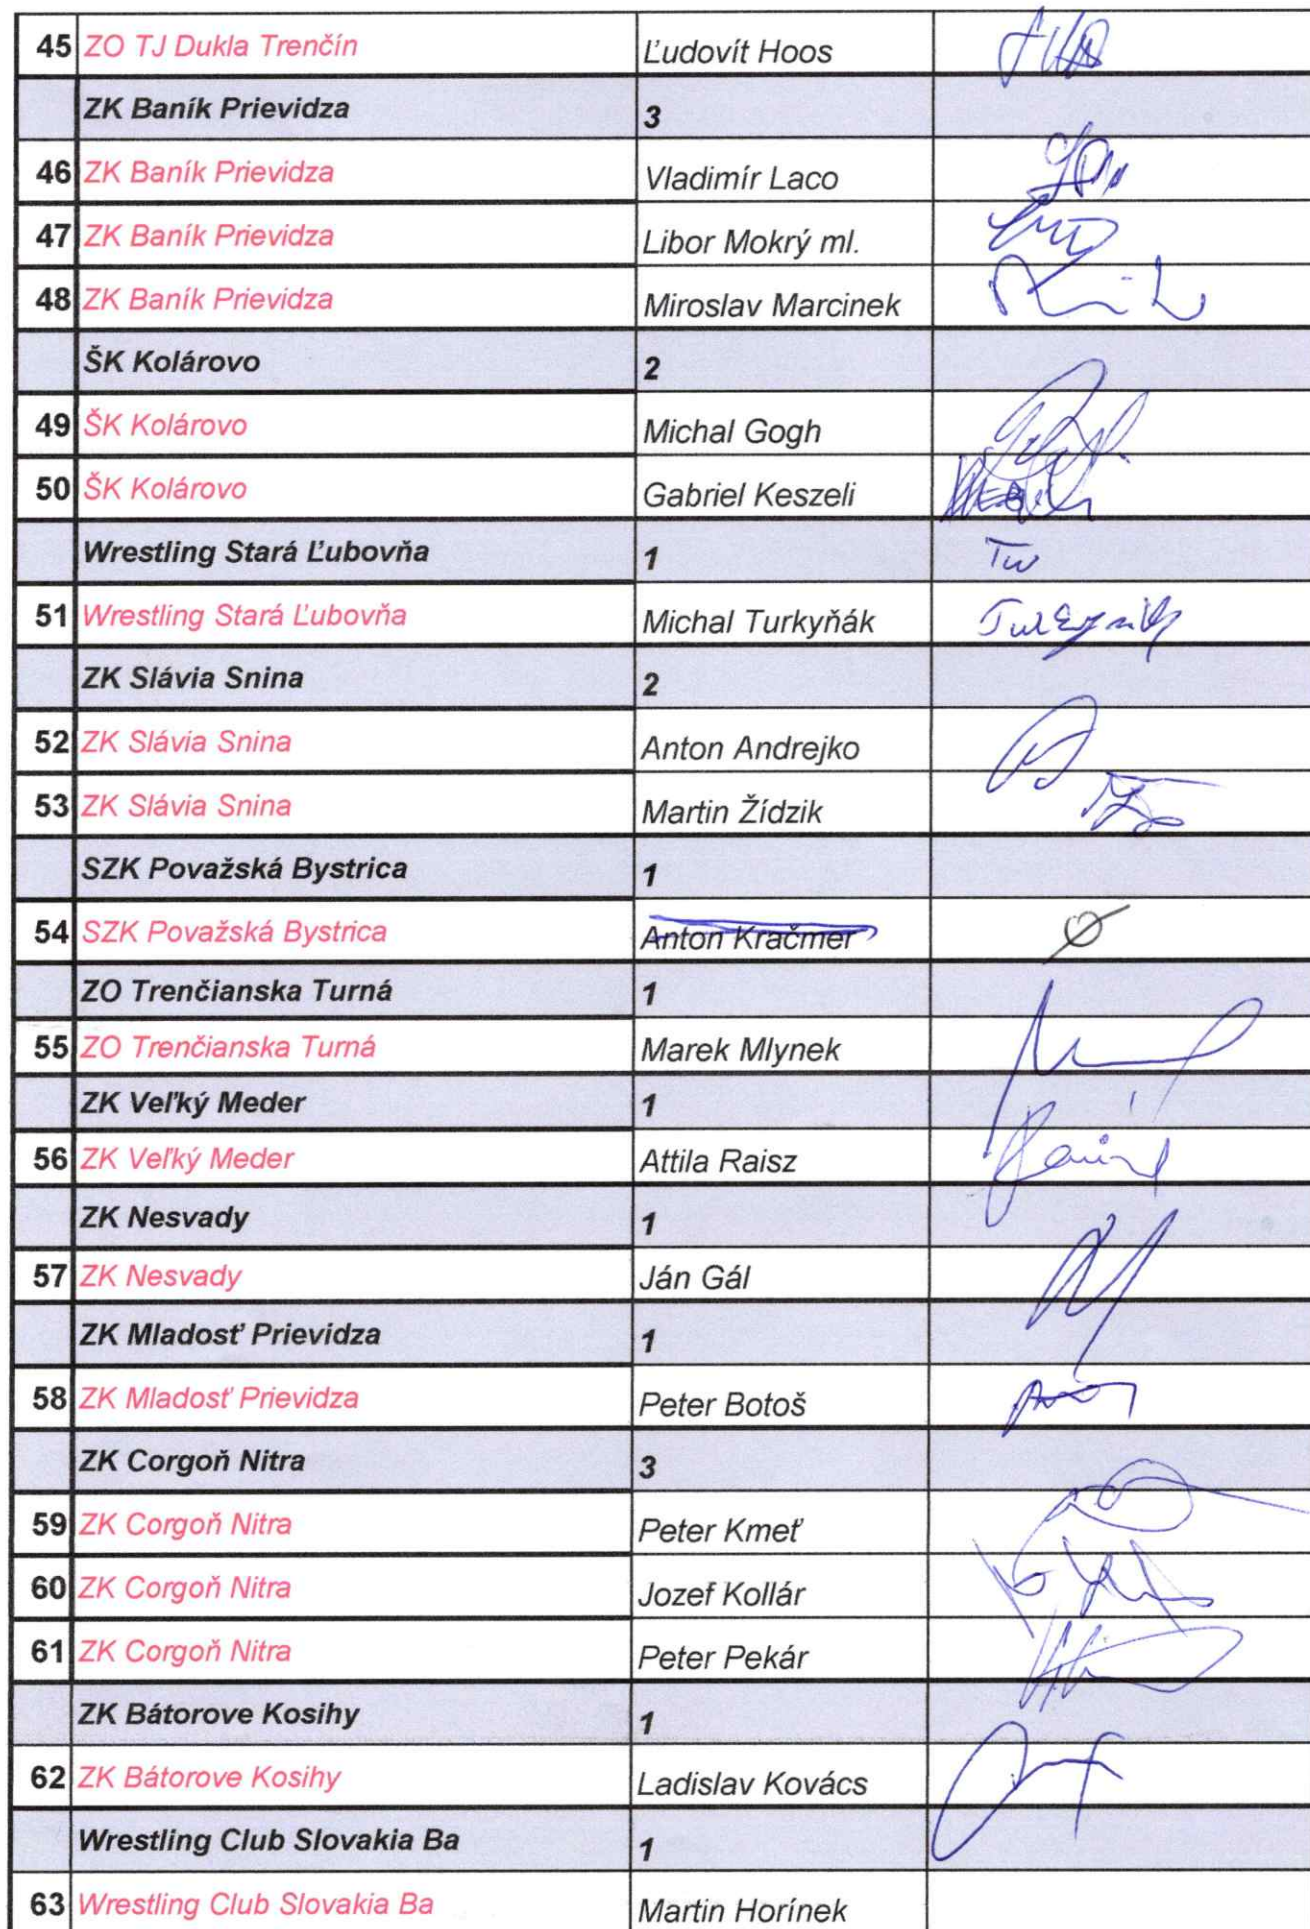 45 ZO TJ Dukla Trenčín Ľudovít Hoos
ZK Baník Prievidza 3
46 ZK Baník Prievidza Vladimír Laco
47 ZK Baník Prievidza Libor Mokrý ml.
48 ZK Baník Prievidza Miroslav Marcinek
ŠK Kolárovo 2
49 ŠK Kolárovo Michal Gogh
50 ŠK Kolárovo Gabriel Keszeli
Wrestling Stará Ľubovňa 1
51 Wrestling Stará Ľubovňa Michal Turkyňák
ZK Slávia Snina 2
52 ZK Slávia Snina Anton Andrejko
53 ZK Slávia Snina Martin Žídzik
SZK Považská Bystrica 1
54 SZK Považská Bystrica Anton Kračmer
ZO Trenčianska Turná 1
55 ZO Trenčianska Turná Marek Mlynek
ZK Veľký Meder 1
56 ZK Veľký Meder Attila Raisz
ZK Nesvady 1
57 ZK Nesvady Ján Gál
ZK Mladosť Prievidza 1
58 ZK Mladosť Prievidza Peter Botoš
ZK Corgoň Nitra 3
59 ZK Corgoň Nitra Peter Kmeť
60 ZK Corgoň Nitra Jozef Kollár
61 ZK Corgoň Nitra Peter Pekár
ZK Bátorove Kosihy 1
62 ZK Bátorove Kosihy Ladislav Kovács
Wrestling Club Slovakia Ba 1
63 Wrestling Club Slovakia Ba Martin Horínek